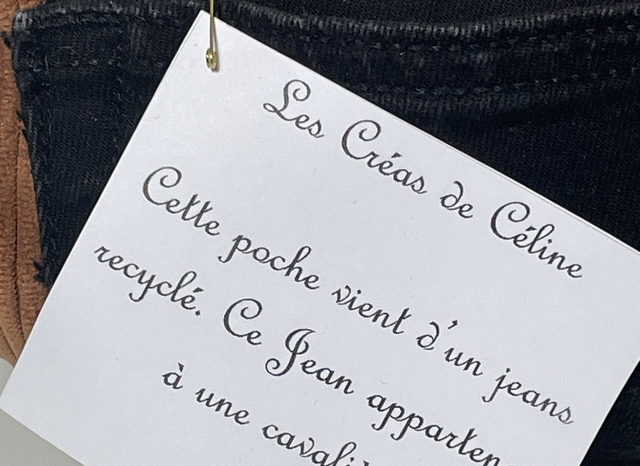 Les Créas de Céline
Cette poche vient d'un jeans
recyclé. Ce Jean
à une